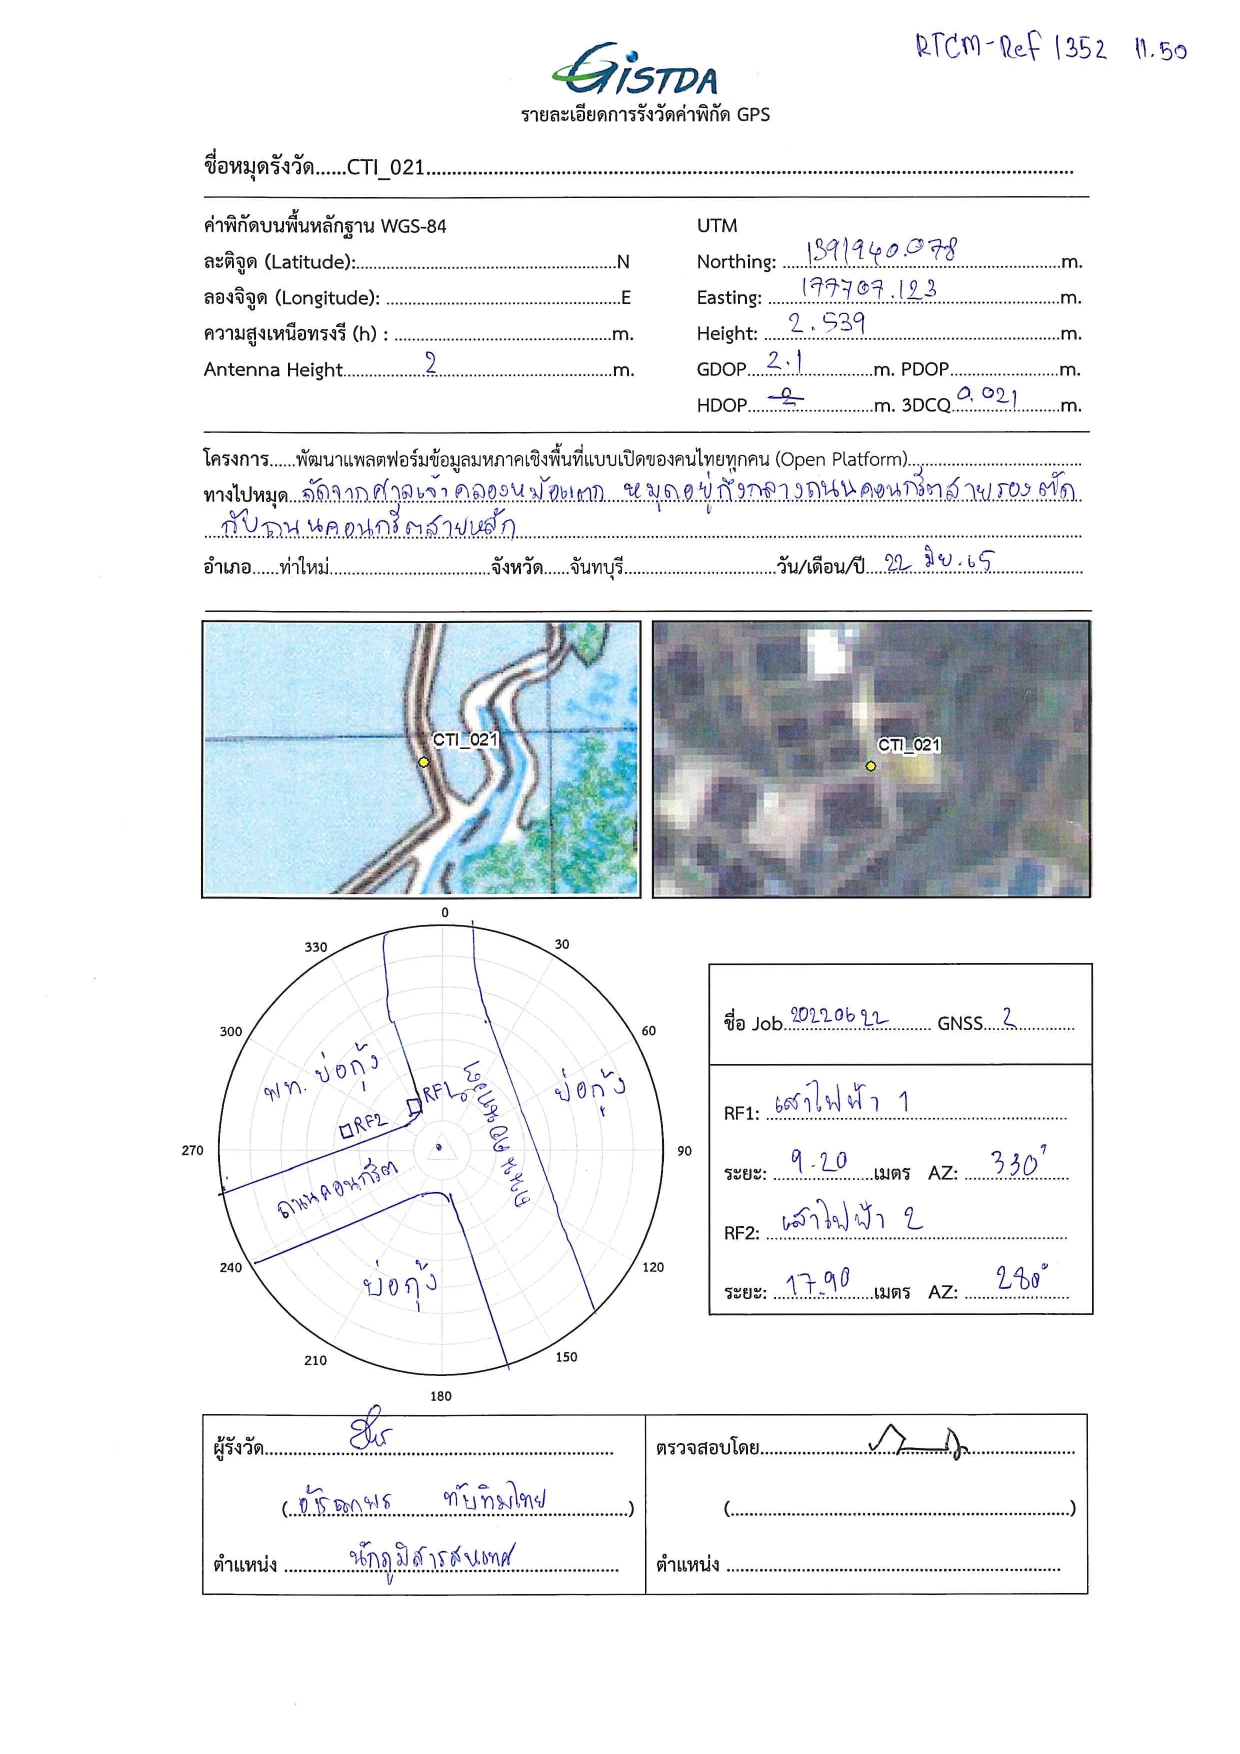 RTCM-Ref 1352 11.50
GISTDA
รายละเอียดการรังวัดค่าพิกัด GPS
ชื่อหมุดรังวัด......CTI_021
ค่าพิกัดบนพื้นหลักฐาน WGS-84 UTM
ละติจูด (Latitude): N Northing: 1391940.078 m.
ลองจิจูด (Longitude): E Easting: 177707.123 m.
ความสูงเหนือทรงรี (h) : m. Height: 2.539 m.
Antenna Height 2 m. GDOP 2.1 m. PDOP m.
HDOP m. 3DCQ 0.021 m.
โครงการ......พัฒนาแพลตฟอร์มข้อมูลมหภาคเชิงพื้นที่แบบเปิดของคนไทยทุกคน (Open Platform)
ทางไปหมุด ถัดจากศาลเจ้าคลองหม้อแตก หมุดอยู่กึ่งกลางถนนคอนกรีตสายรอง ตัด
กับถนนคอนกรีตสายหลัก
อำเภอ......ท่าใหม่ จังหวัด......จันทบุรี วัน/เดือน/ปี 22 มิย. 65
CTI_021
CTI_021
0
330 30
300 60
พท. บ่อกุ้ง บ่อกุ้ง
RF1
RF2
270 90
ถนนคอนกรีต
240 120
บ่อกุ้ง
210 150
180
ชื่อ Job 20220622 GNSS 2
RF1: เสาไฟฟ้า 1
ระยะ: 9.20 เมตร AZ: 330°
RF2: เสาไฟฟ้า 2
ระยะ: 17.90 เมตร AZ: 280°
ผู้รังวัด ตรวจสอบโดย
( ทับทิมไทย ) ( )
ตำแหน่ง นักภูมิสารสนเทศ ตำแหน่ง